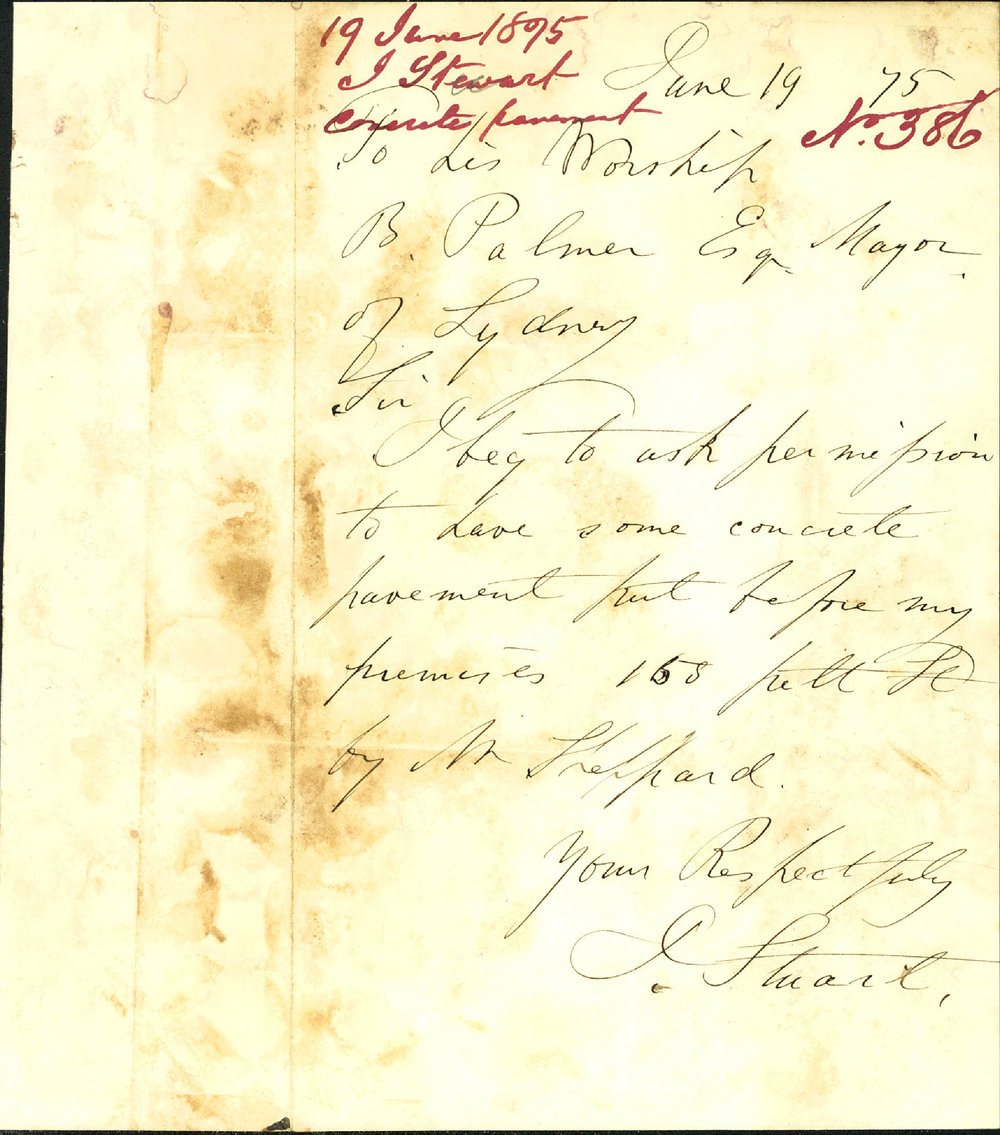 19 June 1895
J Stewart
concrete pavement
No. 386
June 19 75
To his Worship
B. Palmer Esq. Mayor
of Sydney
Sir
I beg to ask permission
to have some concrete
pavement put before my
premises 168 pitt St
by Mr Sheppard.
Yours Respectfully
J. Stuart.